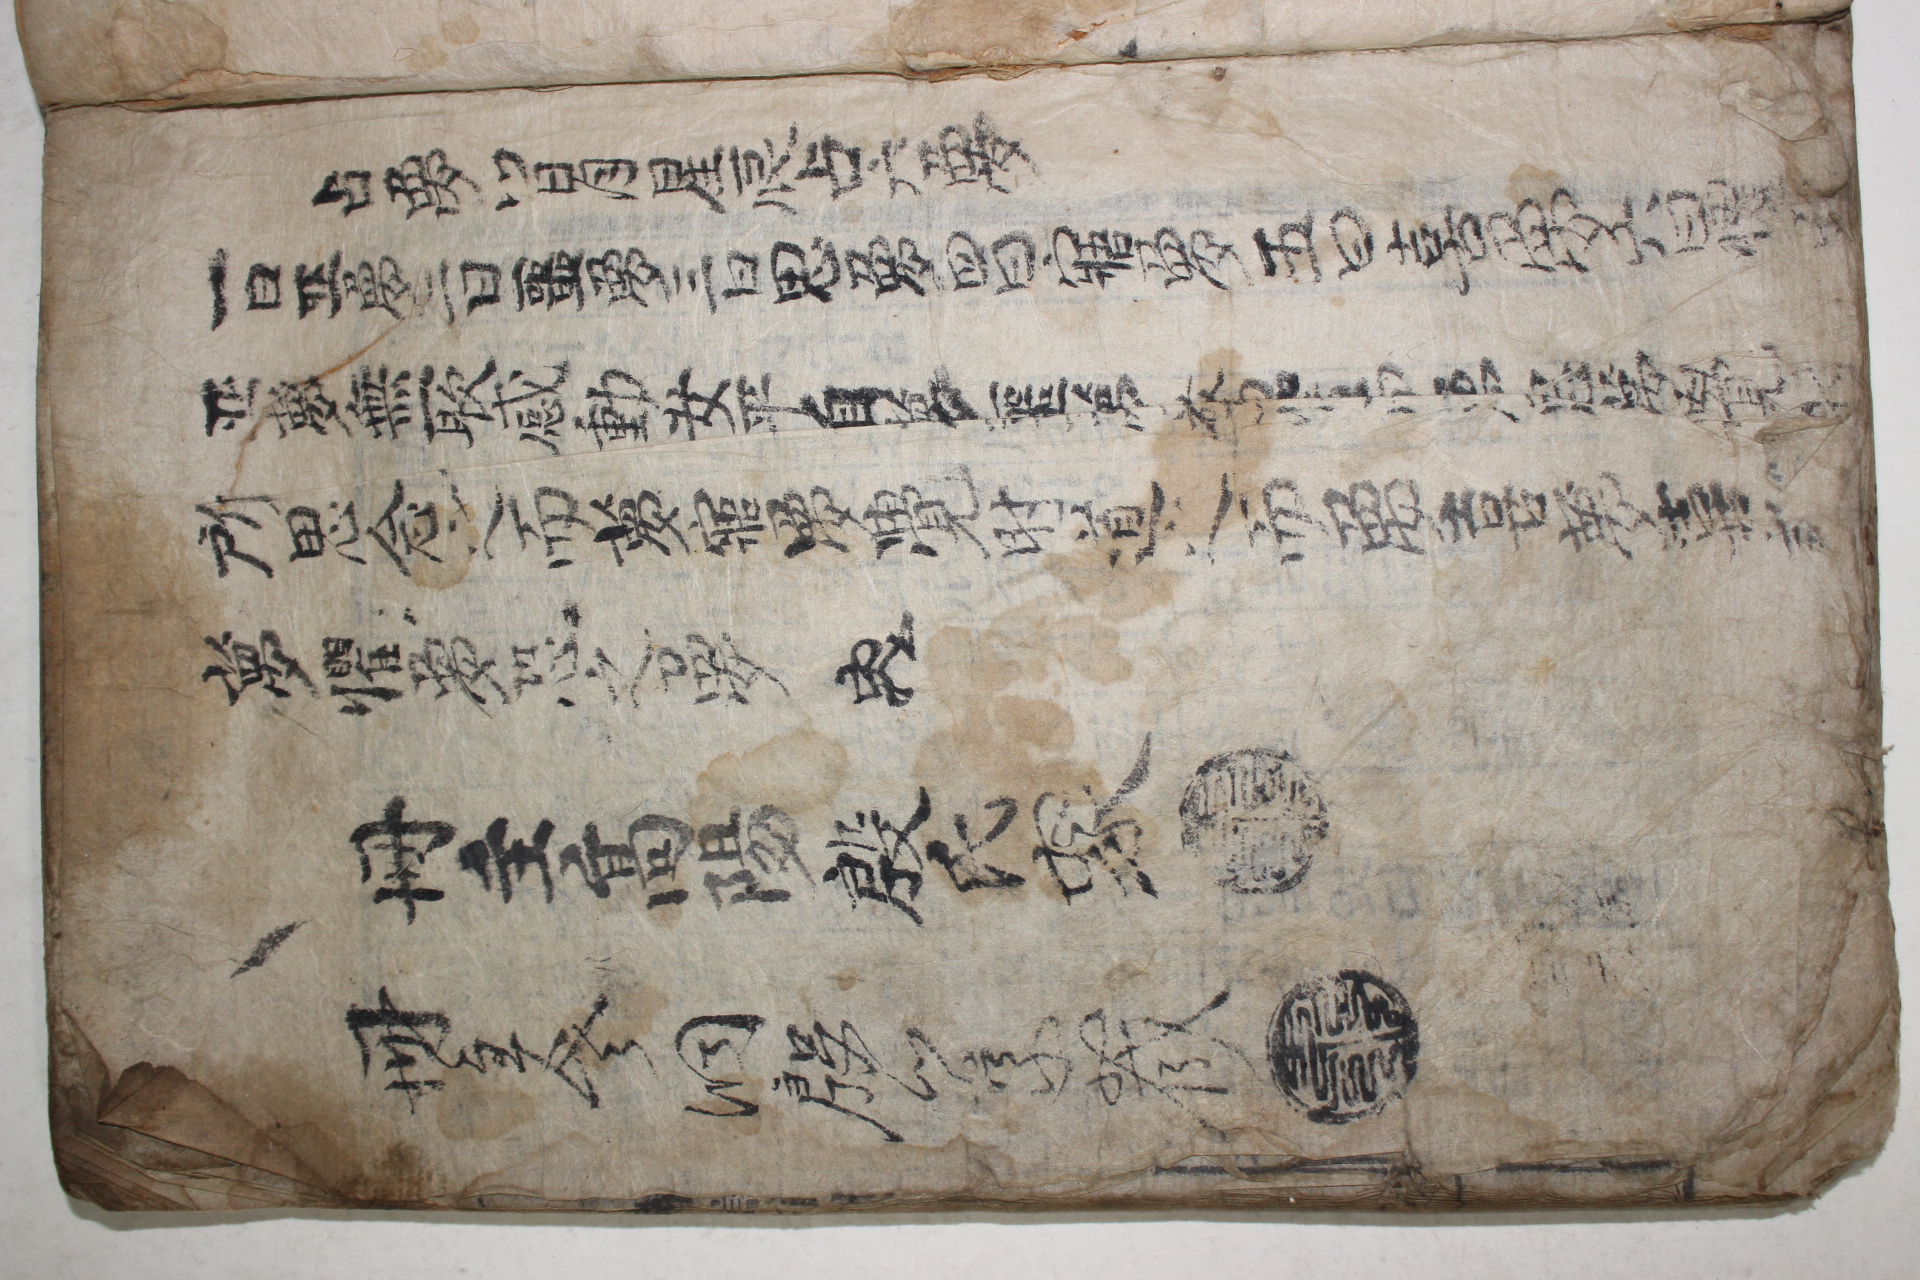 占夢以日月星辰占六夢
一曰正夢二曰噩夢三曰思夢四曰寤夢五曰喜夢六曰懼夢
正夢無所感動安平自夢噩夢驚愕而夢思夢覺時
所思念之而夢寤夢覺時道之而夢喜夢喜悅
夢懼夢恐之夢
冊主高陽殷氏家
冊主令洞殷以亭藏